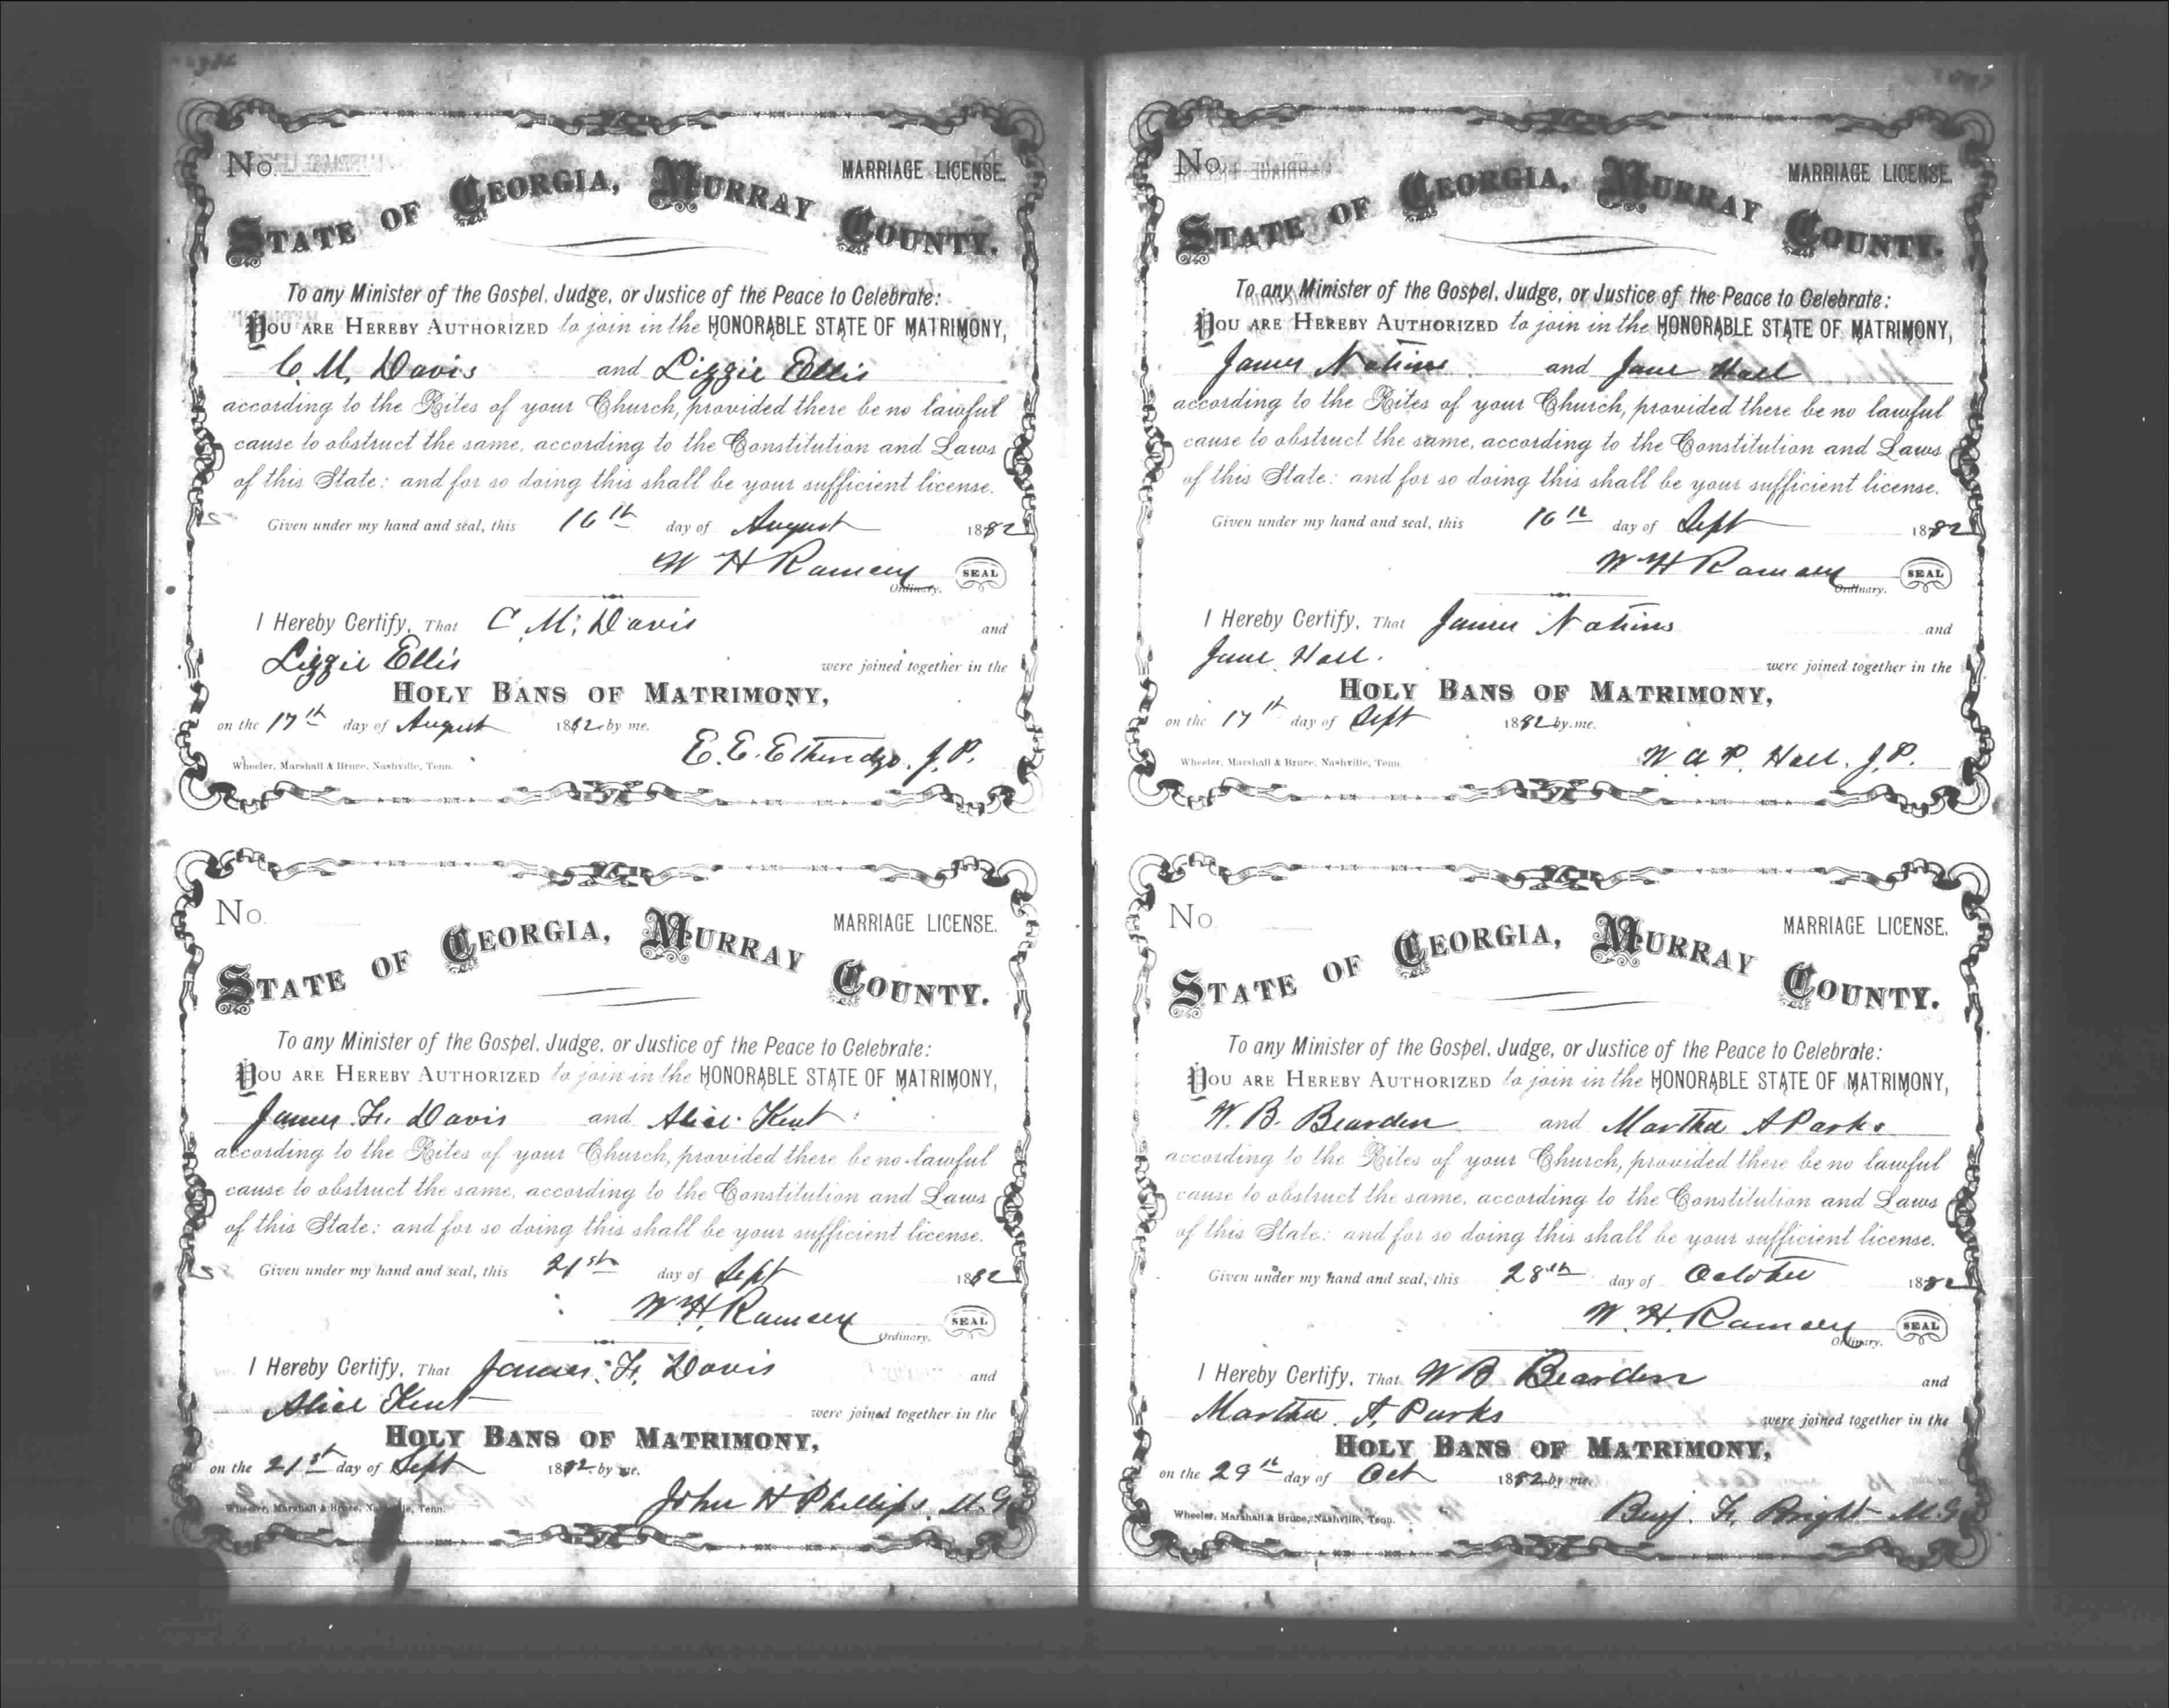 No. MARRIAGE LICENSE.
STATE OF GEORGIA, MURRAY COUNTY.
To any Minister of the Gospel, Judge, or Justice of the Peace to Celebrate:
YOU ARE HEREBY AUTHORIZED to join in the HONORABLE STATE OF MATRIMONY,
C. M. Davis and Lizzie Ellis
according to the Rites of your Church, provided there be no lawful
cause to obstruct the same, according to the Constitution and Laws
of this State: and for so doing this shall be your sufficient license.
Given under my hand and seal, this 16th day of August 1882
W H Ramsey SEAL
Ordinary.
I Hereby Certify, That C. M. Davis and
Lizzie Ellis were joined together in the
HOLY BANS OF MATRIMONY,
on the 17th day of August 1882 by me.
E. E. Etheridge. J. P.
Wheeler, Marshall & Bruce, Nashville, Tenn.
No. MARRIAGE LICENSE.
STATE OF GEORGIA, MURRAY COUNTY.
To any Minister of the Gospel, Judge, or Justice of the Peace to Celebrate:
YOU ARE HEREBY AUTHORIZED to join in the HONORABLE STATE OF MATRIMONY,
James F. Davis and Alice Kent
according to the Rites of your Church, provided there be no lawful
cause to obstruct the same, according to the Constitution and Laws
of this State: and for so doing this shall be your sufficient license.
Given under my hand and seal, this 21st day of Sept 1882
W. H. Ramsey SEAL
Ordinary.
I Hereby Certify, That James F. Davis and
Alice Kent were joined together in the
HOLY BANS OF MATRIMONY,
on the 21st day of Sept 1882 by me.
John H Phillips. M. G.
Wheeler, Marshall & Bruce, Nashville, Tenn.
No. MARRIAGE LICENSE.
STATE OF GEORGIA, MURRAY COUNTY.
To any Minister of the Gospel, Judge, or Justice of the Peace to Celebrate:
YOU ARE HEREBY AUTHORIZED to join in the HONORABLE STATE OF MATRIMONY,
James and Jane Hall
according to the Rites of your Church, provided there be no lawful
cause to obstruct the same, according to the Constitution and Laws
of this State: and for so doing this shall be your sufficient license.
Given under my hand and seal, this 16th day of Sept 1882
W H Ramsey SEAL
Ordinary.
I Hereby Certify, That James and
Jane Hall. were joined together in the
HOLY BANS OF MATRIMONY,
on the 17th day of Sept 1882 by me.
W A P. Hall. J. P.
Wheeler, Marshall & Bruce, Nashville, Tenn.
No MARRIAGE LICENSE.
STATE OF GEORGIA, MURRAY COUNTY.
To any Minister of the Gospel, Judge, or Justice of the Peace to Celebrate:
YOU ARE HEREBY AUTHORIZED to join in the HONORABLE STATE OF MATRIMONY,
W. B. Bearden and Martha A Parks
according to the Rites of your Church, provided there be no lawful
cause to obstruct the same, according to the Constitution and Laws
of this State: and for so doing this shall be your sufficient license.
Given under my hand and seal, this 28th day of October 1882
W. H. Ramsey SEAL
Ordinary.
I Hereby Certify, That W B Bearden and
Martha. A. Parks were joined together in the
HOLY BANS OF MATRIMONY,
on the 29th day of Oct 1882 by me.
Benj. F. Bright M. G.
Wheeler, Marshall & Bruce, Nashville, Tenn.